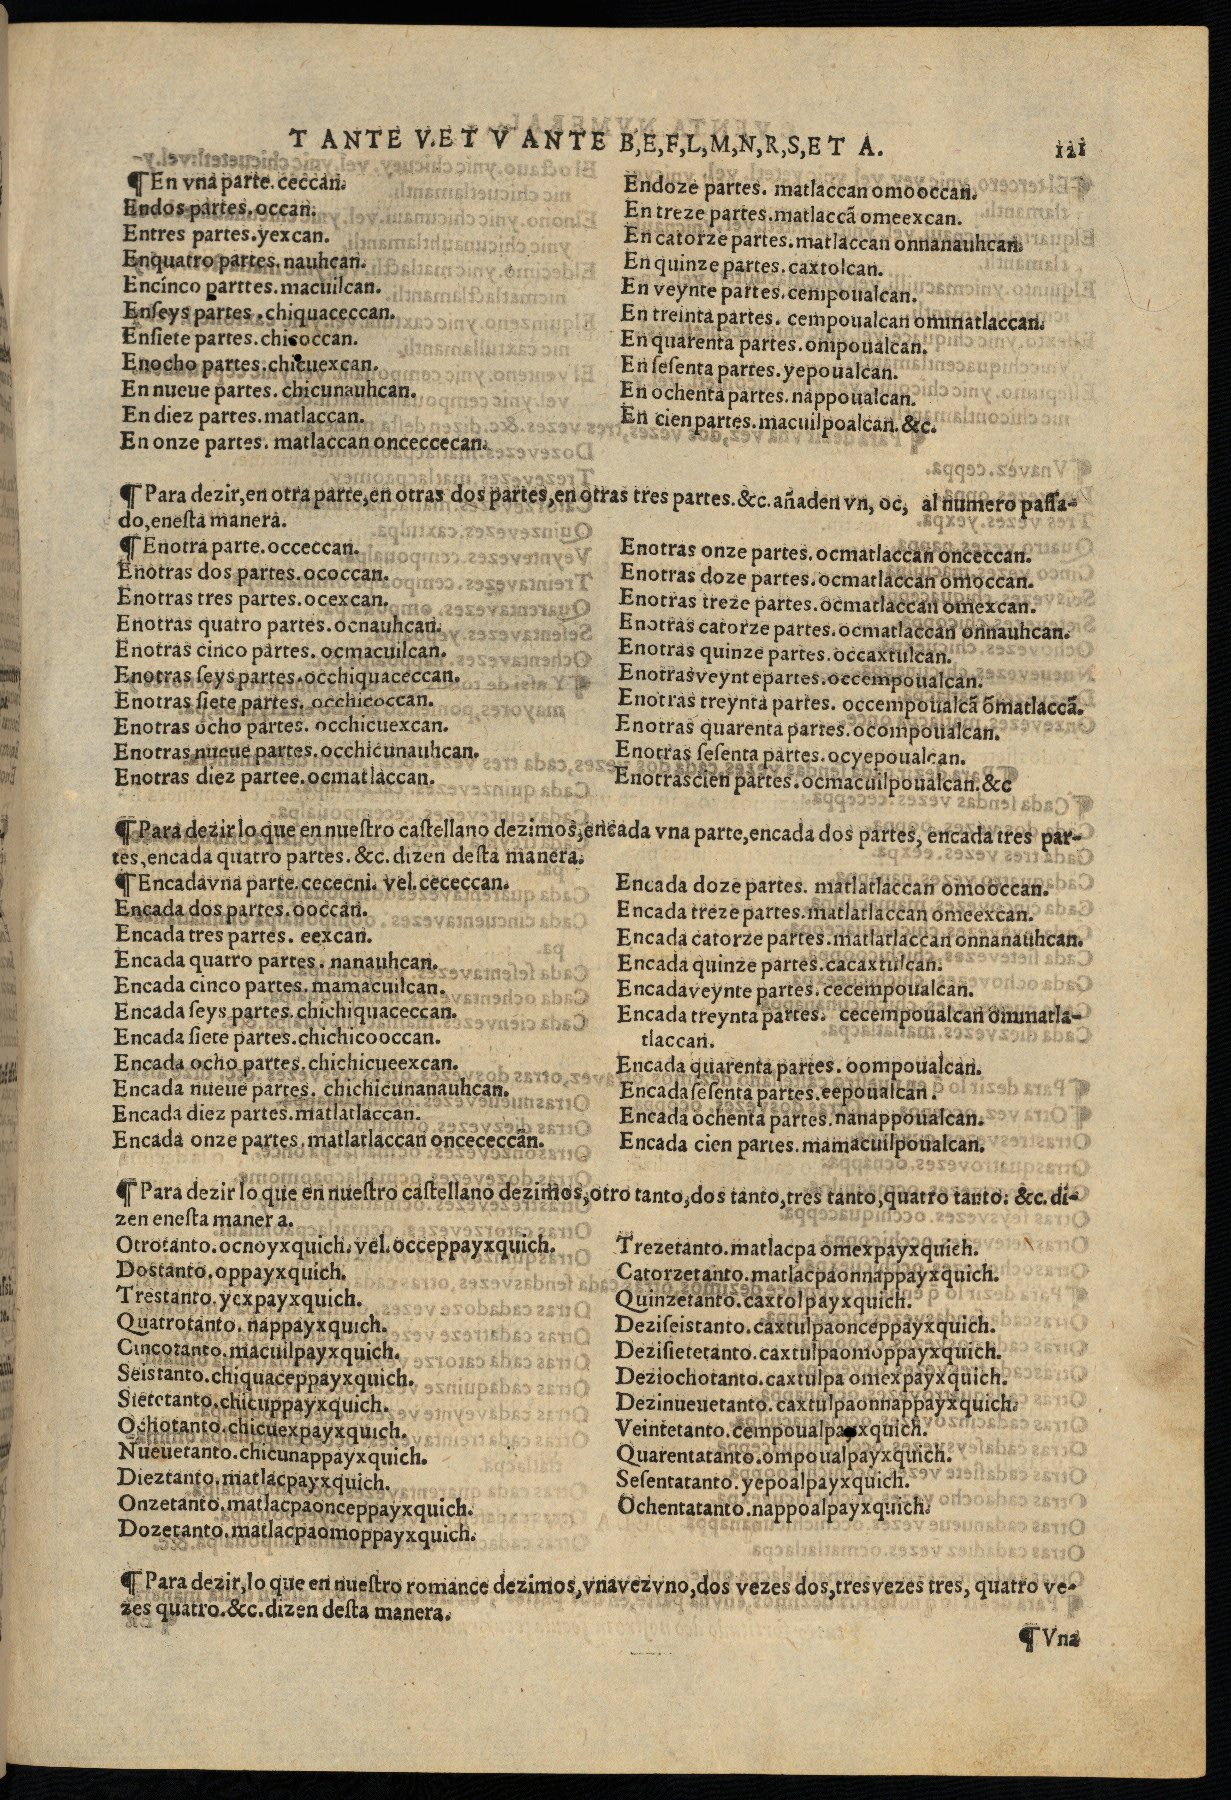 T ANTE V.ET V ANTE B,E,F,L,M,N,R,S,ET A. iii
¶En vna parte. ceccan.
Endos partes. occan.
Entres partes. yexcan.
Enquatro partes. nauhcan.
Encinco parttes. macuilcan.
Enſeys partes .chiquaceccan.
Enſiete partes. chicoccan.
Enocho partes. chicuexcan.
En nueue partes. chicunauhcan.
En diez partes. matlaccan.
En onze partes. matlaccan onceccecan.
Endoze partes. matlaccan omooccan.
En treze partes. matlaccã omeexcan.
En catorze partes. matlaccan onnanauhcan.
En quinze partes. caxtolcan.
En veynte partes. cempoualcan.
En treinta partes. cempoualcan ommatlaccan.
En quarenta partes. ompoualcan.
En seſenta partes. yepoualcan.
En ochenta partes. nappoualcan.
En cien partes. macuilpoalcan. &c.
¶ Para dezir, en otra parte, en otras dos partes, en otras tres partes. &c. añaden vn, oc, al numero paſſa-
do, eneſta manera.
¶ Enotra parte. occeccan.
Enotras dos partes. ococcan.
Enotras tres partes. ocexcan.
Enotras quatro partes. ocnauhcan.
Enotras cinco partes. ocmacuilcan.
Enotras ſeys partes. occhiquaceccan.
Enotras ſiete partes. occhicoccan.
Enotras ocho partes. occhicuexcan.
Enotras nueue partes. occhicunauhcan.
Enotras diez partee. ocmatlaccan.
Enotras onze partes. ocmatlaccan onceccan.
Enotras doze partes. ocmatlaccan omoccan.
Enotras treze partes. ocmatlaccan omexcan.
Enotras catorze partes. ocmatlaccan onnauhcan.
Enotras quinze partes. occaxtulcan.
Enotras veynte partes. occempoualcan.
Enotras treynta partes. occempoualcã õmatlaccã.
Enotras quarenta partes. ocompoualcan.
Enotras seſenta partes. ocyepoualcan.
Enotras cien partes. ocmacuilpoualcan. &c
¶ Para dezir lo que en nueſtro caſtellano dezimos, encada vna parte, encada dos partes, encada tres par-
tes, encada quatro partes. &c. dizen deſta manera.
¶ Encada vna parte. cececni. vel. cececcan.
Encada dos partes. ooccan.
Encada tres partes. eexcan.
Encada quatro partes. nanauhcan.
Encada cinco partes. mamacuilcan.
Encada ſeys partes. chichiquaceccan.
Encada ſiete partes. chichicooccan.
Encada ocho partes. chichicueexcan.
Encada nueue partes. chichicunanauhcan.
Encada diez partes. matlatlaccan.
Encada onze partes. matlatlaccan oncececcãn.
Encada doze partes. matlatlaccan omooccan.
Encada treze partes. matlatlaccan omeexcan.
Encada catorze partes. matlatlaccan onnanauhcan.
Encada quinze partes. cacaxtulcan.
Encada veynte partes. cecempoualcan.
Encada treynta partes. cecempoualcan ommatla-
tlaccan.
Encada quarenta partes. oompoualcan.
Encada seſenta partes. eepoualcan.
Encada ochenta partes. nanappoualcan.
Encada cien partes. mamacuilpoualcan.
¶ Para dezir lo que en nueſtro caſtellano dezimos, otro tanto, dos tanto, tres tanto, quatro tanto. &c. di-
zen eneſta maner a.
Otrotanto. ocnoyxquich. vel. occeppayxquich.
Dostanto. oppayxquich.
Trestanto. yexpayxquich.
Quatrotanto. nappayxquich.
Cincotanto. macuilpayxquich.
Seistanto. chiquaceppayxquich.
Sietetanto. chicuppayxquich.
Ochotanto. chicuexpayxquich.
Nueuetanto. chicunappayxquich.
Dieztanto. matlacpayxquich.
Onzetanto. matlacpaonceppayxquich.
Dozetanto. matlacpaomoppayxquich.
Trezetanto. matlacpa omexpayxquich.
Catorzetanto. matlacpaonnappayxquich.
Quinzetanto. caxtolpayxquich.
Deziſeistanto. caxtulpaonceppayxquich.
Deziſietetanto. caxtulpaomoppayxquich.
Deziochotanto. caxtulpa omexpayxquich.
Dezinueuetanto. caxtulpaonnappayxquich.
Veintetanto. cempoualpayxquich.
Quarentatanto. ompoualpayxquich.
Seſentatanto. yepoalpayxquich.
Ochentatanto. nappoalpayxquich.
¶ Para dezir, lo que en nueſtro romance dezimos, vna vez vno, dos vezes dos, tres vezes tres, quatro ve-
zes quatro. &c. dizen deſta manera.
¶ Vna